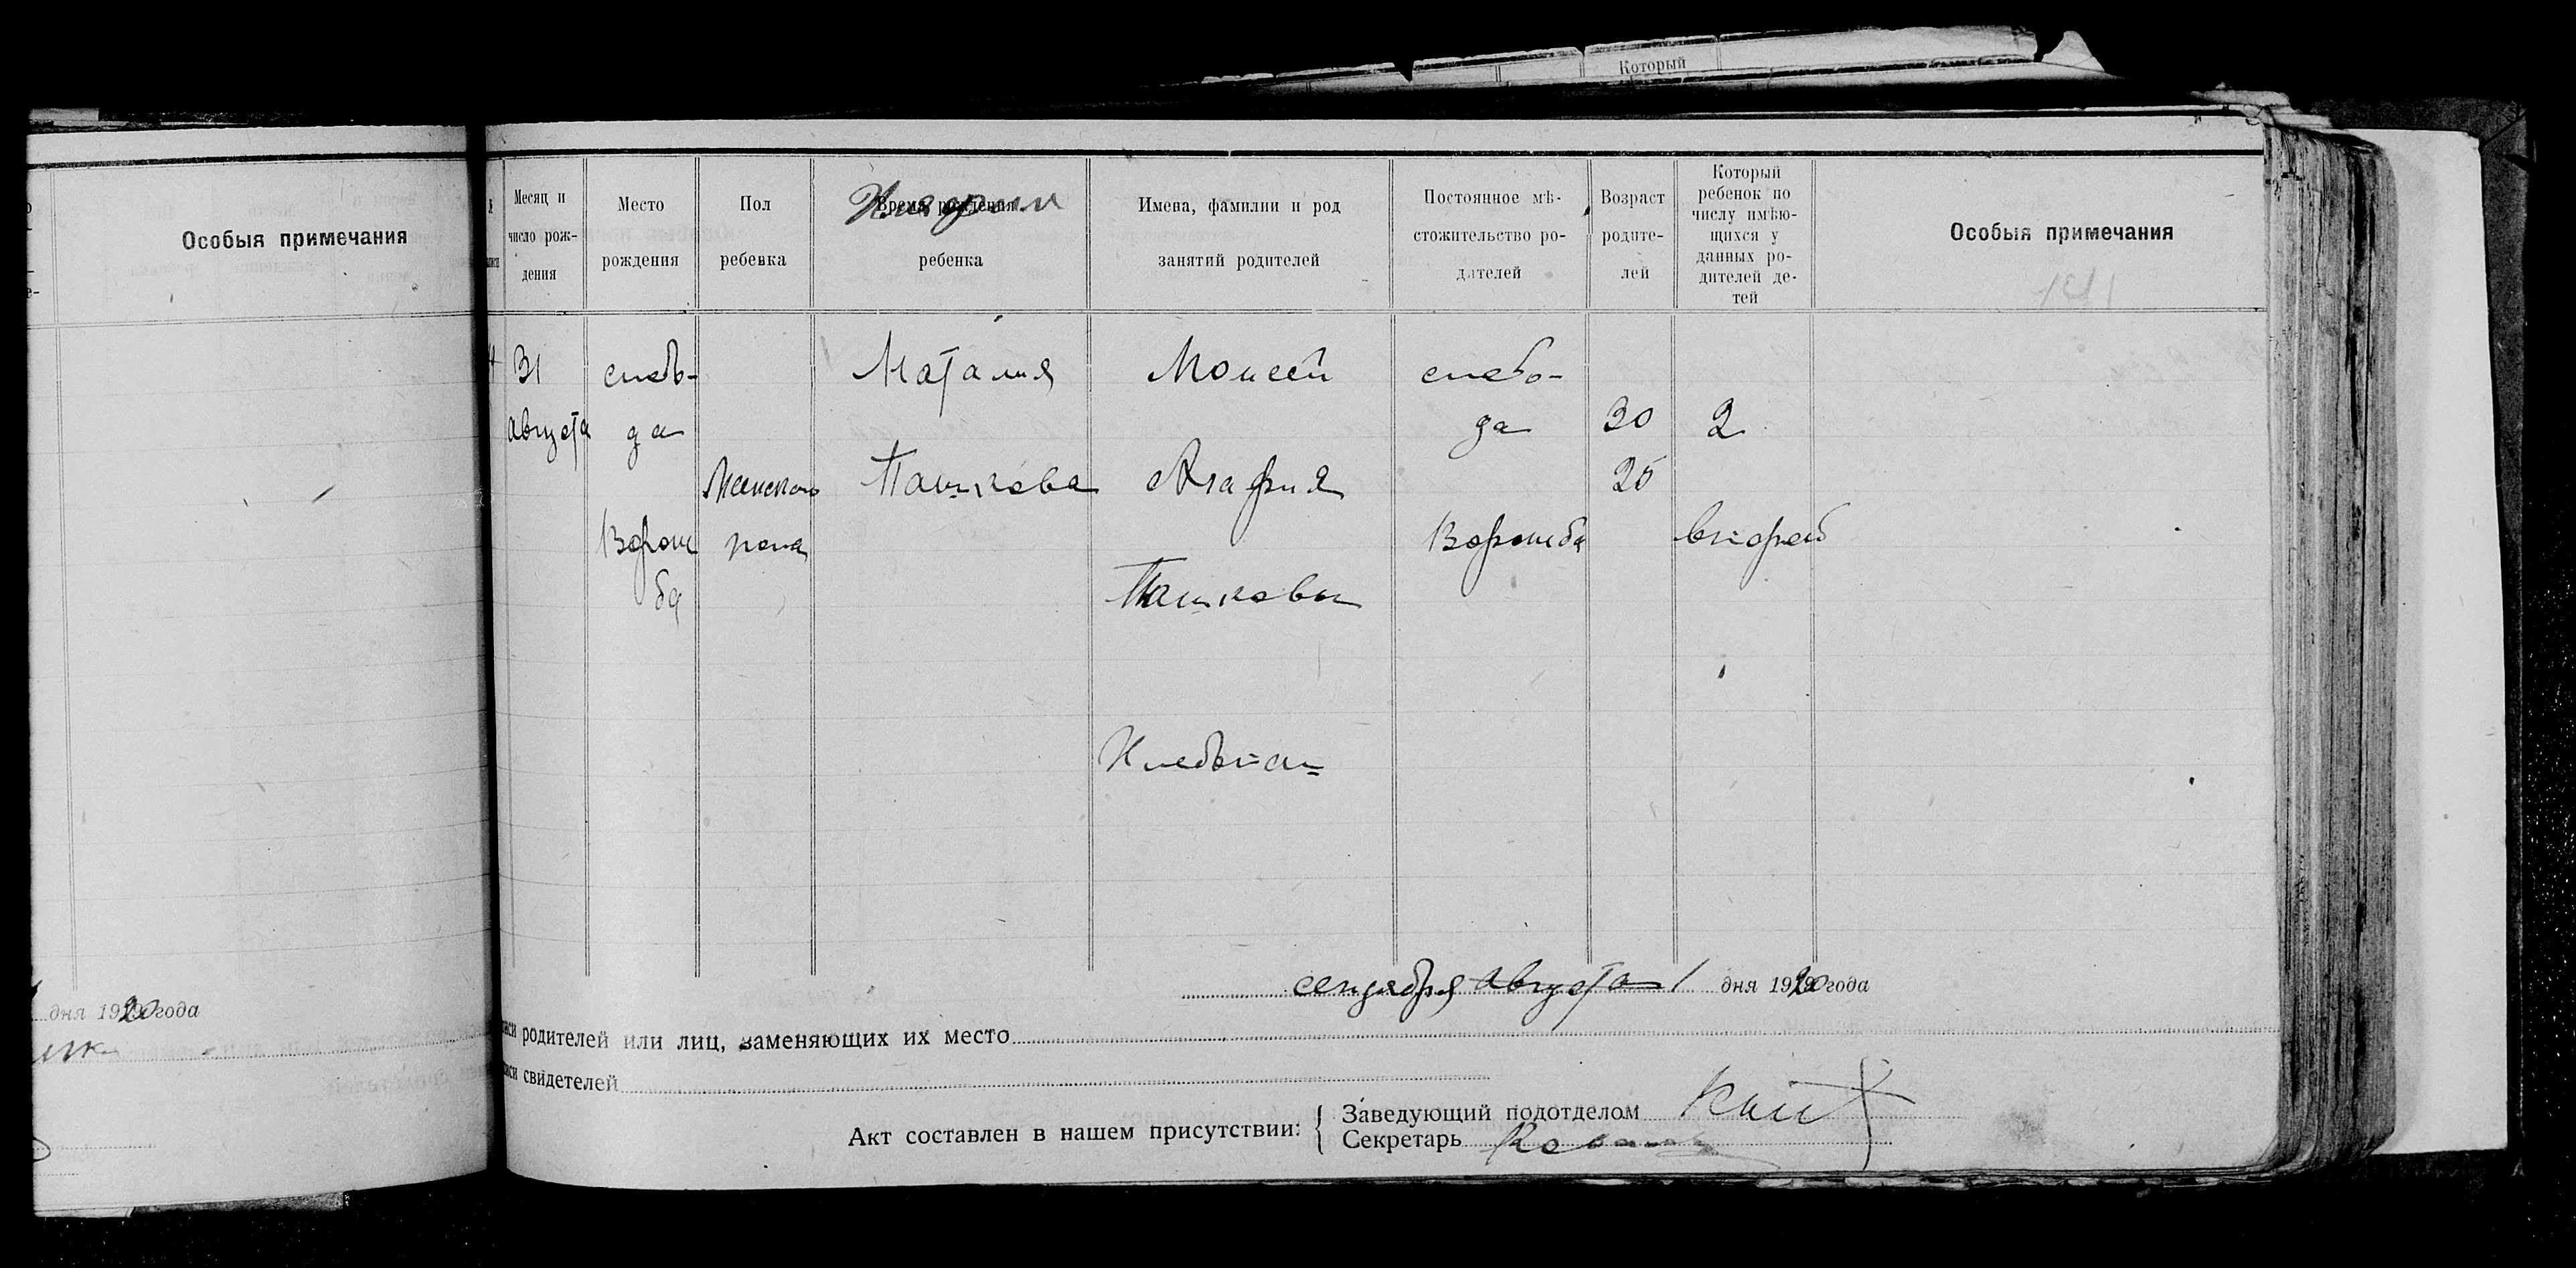 Который
Особыя примечания
дня 1920 года
Месяц и число рождения
Место рождения
Пол ребенка
Время рождения ребенка
Имена, фамилии и род занятий родителей
Постоянное мѣстожительство родателей
Возраст родителей
Который ребенок по числу имѣющихся у данных родителей детей
Особыя примечания
31 августа
слобода Ворожба
Женского пола
Наталия
Пашкова
Моисей
Агафия
Пашковы
Хлебопаш
слобода Ворожба
30
25
2
второй
сентября августа 1 дня 1920 года
родителей или лиц, заменяющих их место
свидетелей
Акт составлен в нашем присутствии:
Заведующий подотделом
Секретарь